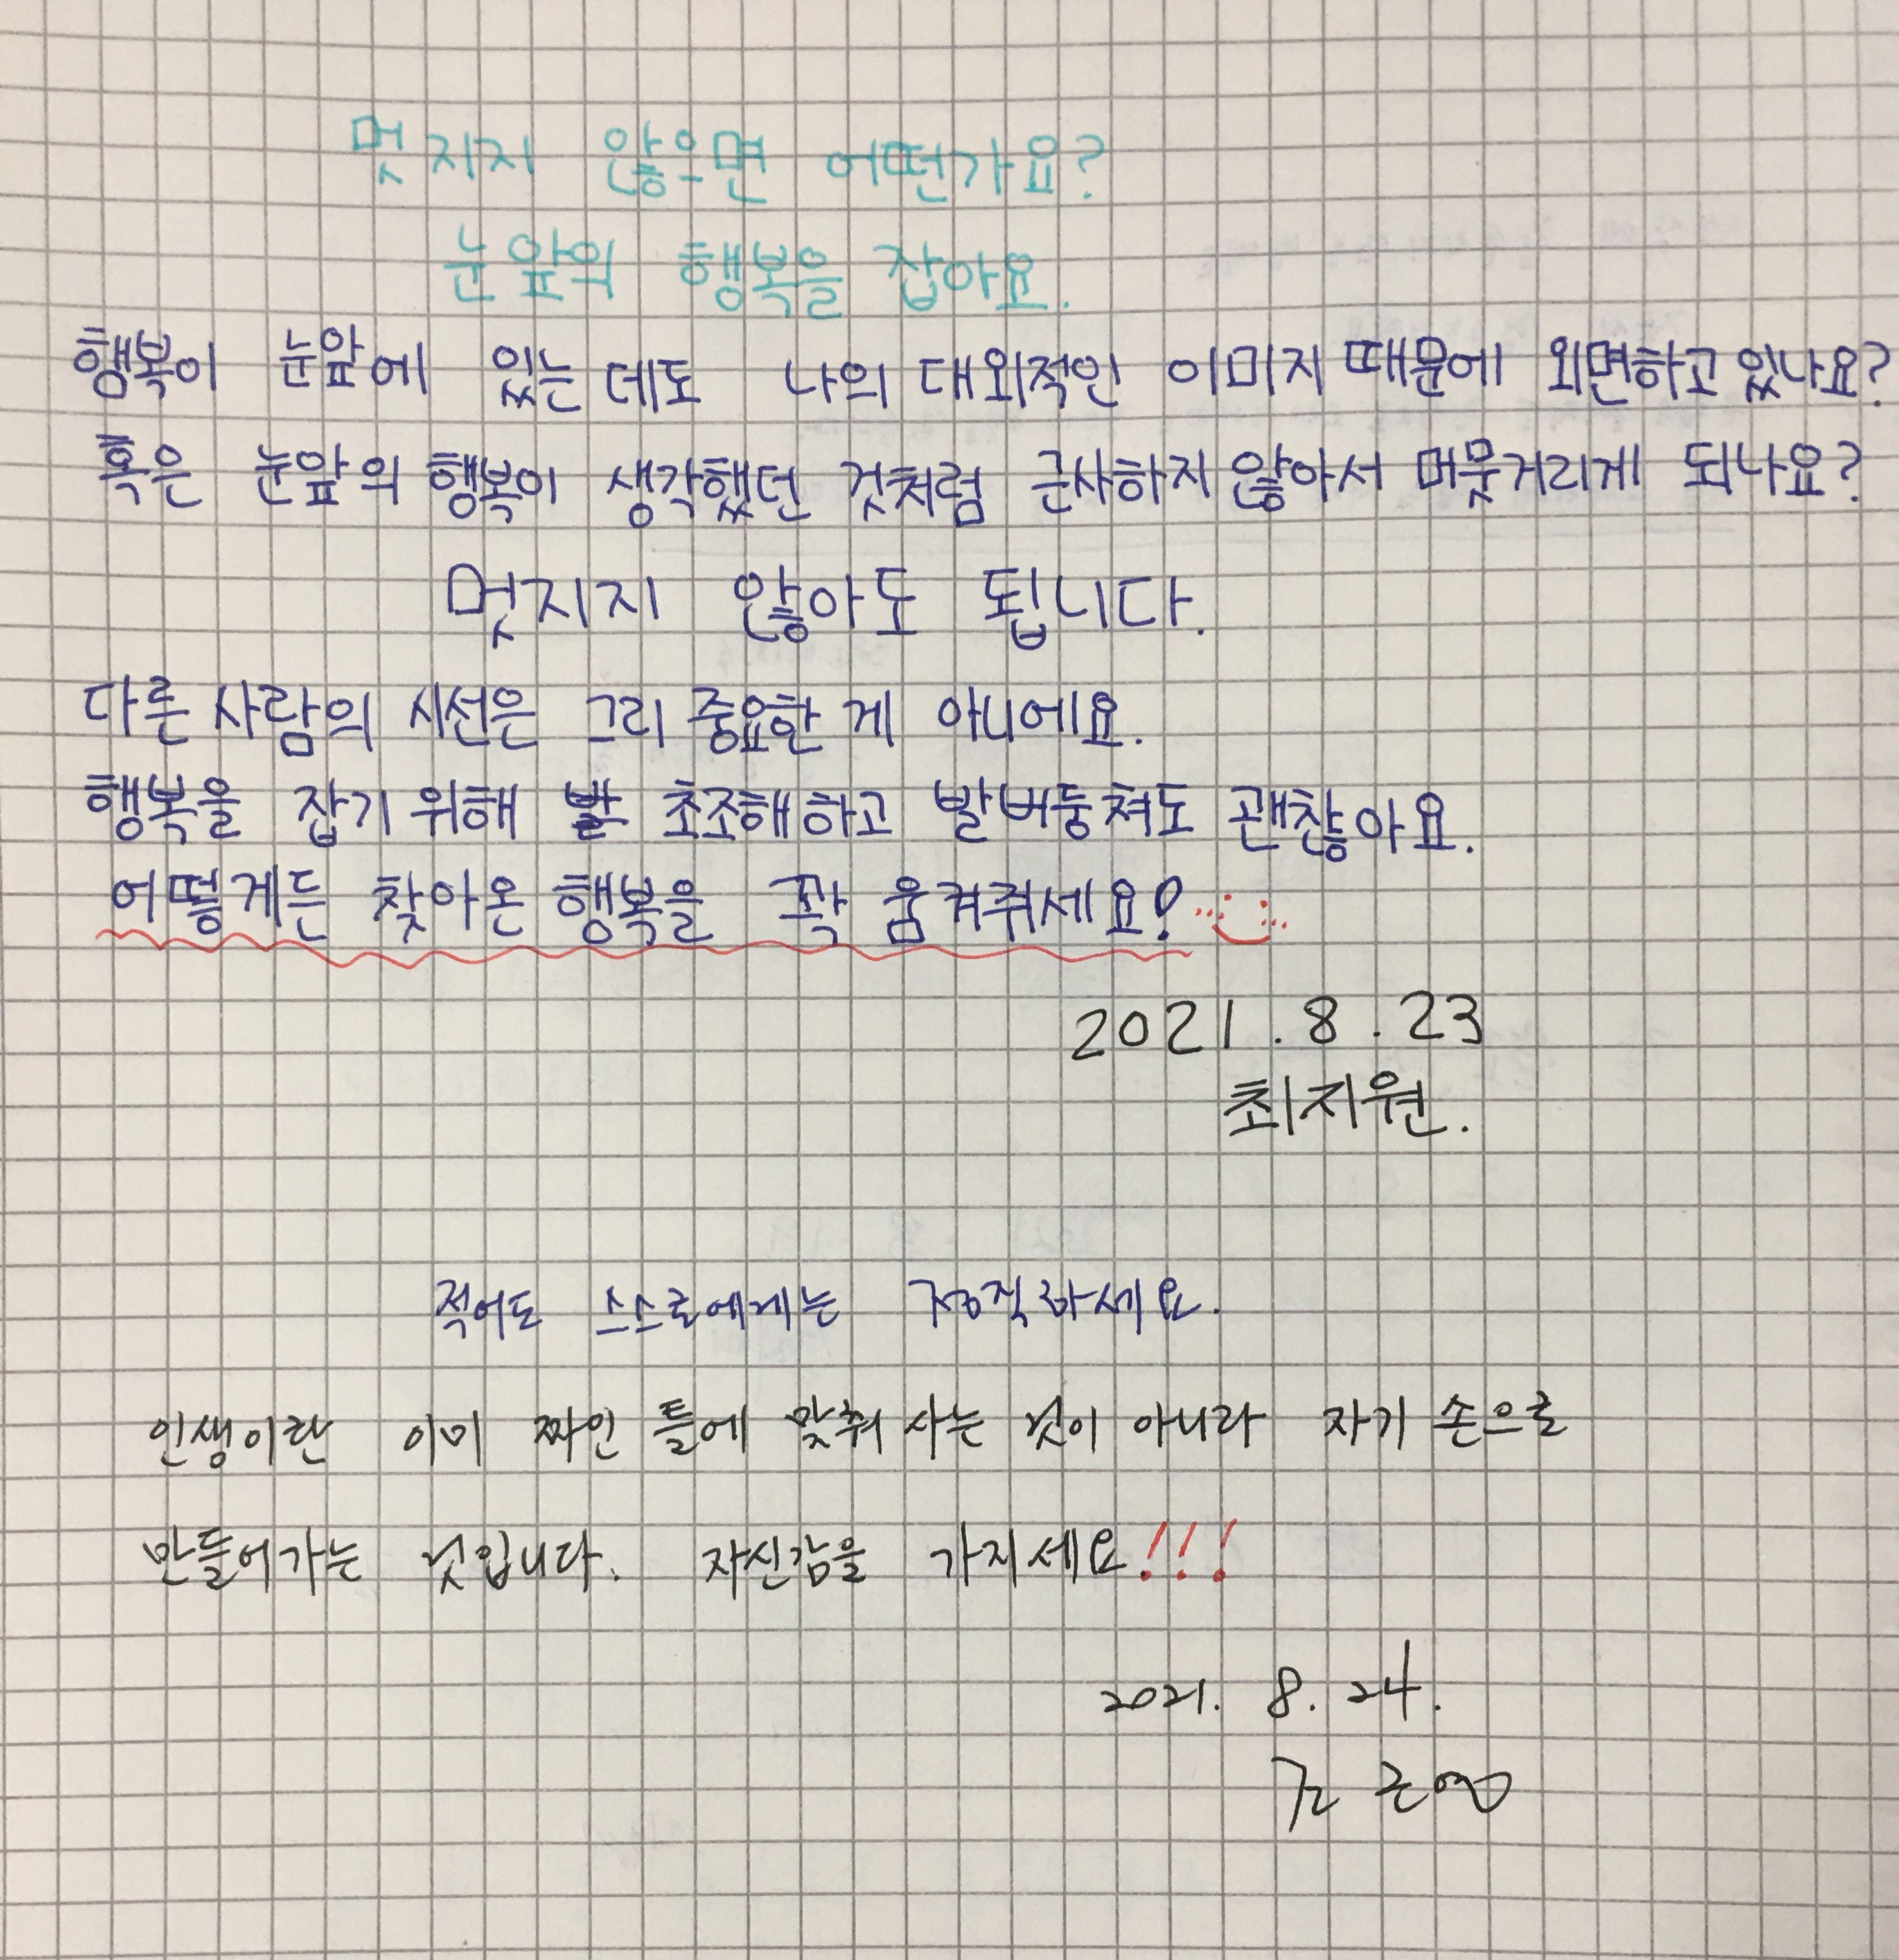 멋지지 않으면 어떤가요?
눈앞의 행복을 잡아요.
행복이 눈앞에 있는데도 나의 대외적인 이미지 때문에 외면하고 있나요?
혹은 눈앞의 행복이 생각했던 것처럼 근사하지 않아서 머뭇거리게 되나요?
멋지지 않아도 됩니다.
다른 사람의 시선은 그리 중요한 게 아니에요.
행복을 잡기 위해 초조해하고 발버둥쳐도 괜찮아요.
어떻게든 찾아온 행복을 꽉 움켜쥐세요!
2021.8.23
최지원.
적어도 스스로에게는 정직하세요.
인생이란 이미 짜인 틀에 맞춰 사는 것이 아니라 자기 손으로
만들어가는 것입니다. 자신감을 가지세요!!!
2021. 8. 24.